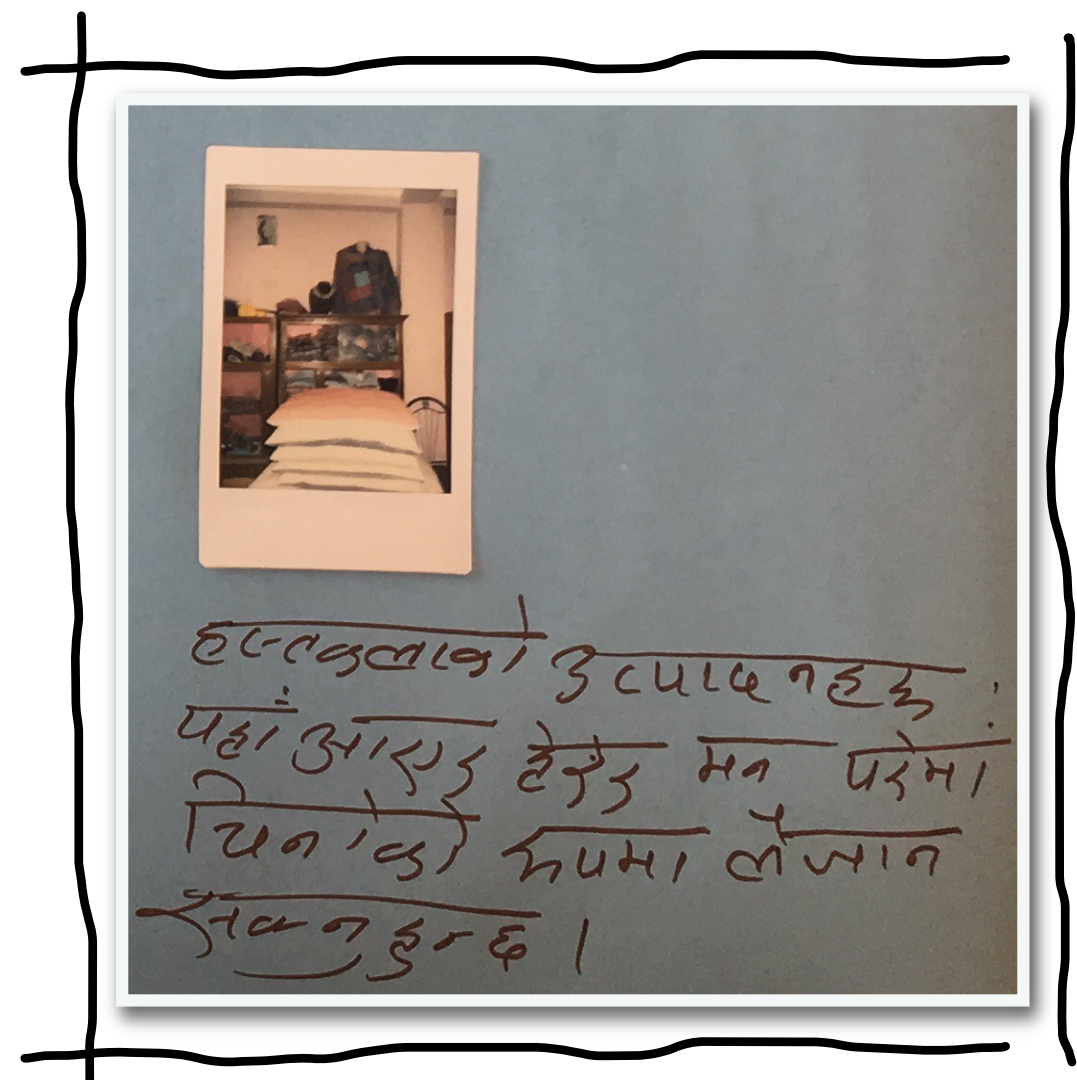 हस्तकलाको उत्पादनहरू
यहाँ आएर हेरेर मन परेमा
चिनोको रूपमा लैजान
सक्नुहुन्छ ।